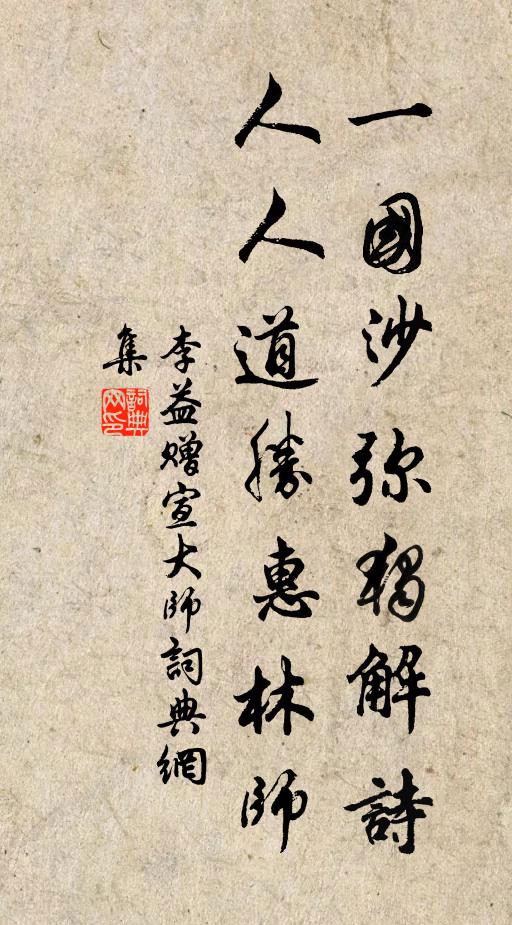 一國沙弥獨解詩
人人道勝惠林師
李益贈宣大師詞典網
集
詞典
網印